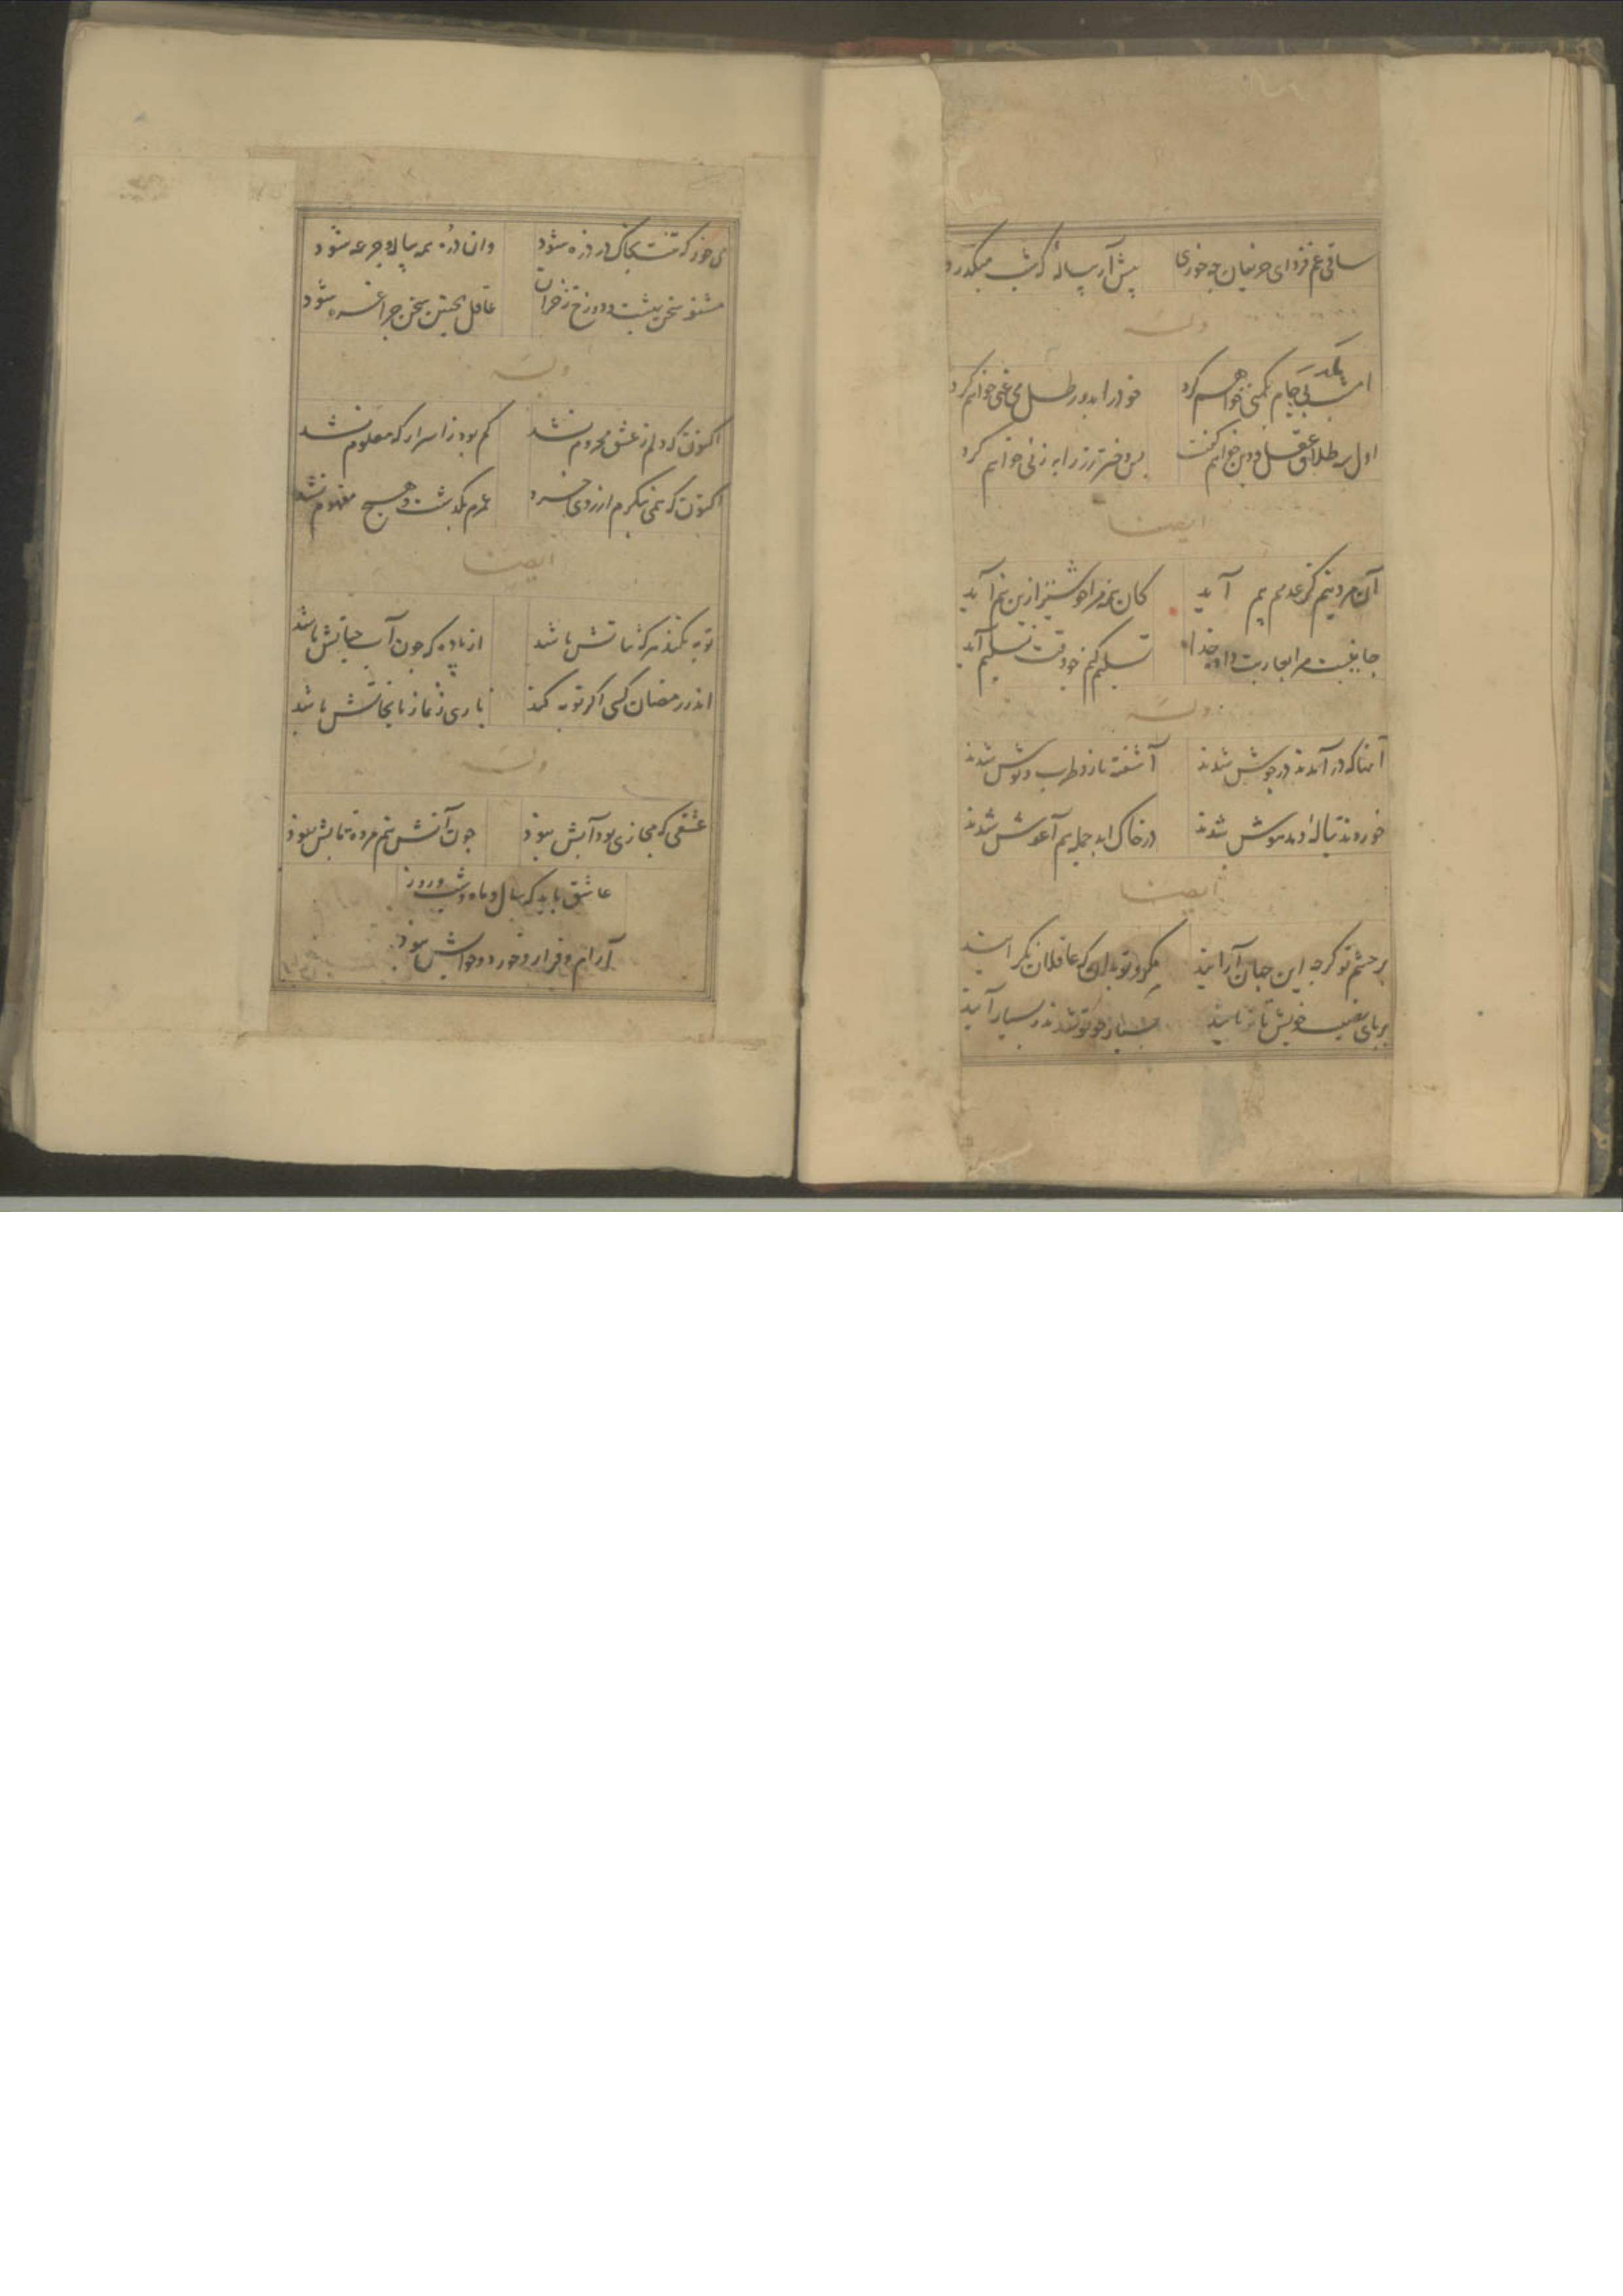 ساقی غم فردای حریفان چه خوری پیش آر پیاله را که شب میگذرد
وله
امشب پی جام یکمنی خواهم کرد خود را بدو رطل می غنی خواهم کرد
اول سه طلاق عقل و دین خواهم گفت پس دختر رز را به زنی خواهم کرد
ایضا
آن مرد نیم کز عدمم بیم آید کان نیمه مرا خوشتر ازین نیم آید
جانیست مرا بعاریت داده خدا تسلیم کنم چو وقت تسلیم آید
وله
آنها که در آمدند و در جوش شدند آشفته ناز و طرب و نوش شدند
خوردند پیاله و مدهوش شدند در خاک ابد جمله هم آغوش شدند
ایضا
بر چشم تو گرچه این جهان آرایند مگرو تو بدان که عاقلان نگرایند
بربای نصیب خویش تا نربایند بسیار چو تو شدند و بسیار آیند
می خور که تنت بخاک در ذره شود وان ذره همه پیاله و جره شود
مشنو سخن بهشت و دوزخ ز خران عاقل بچنین سخن چرا غره شود
وله
اکنون که دلم ز عشق محروم نشد کم بود ز اسرار که معلوم نشد
اکنون که همی بنگرم از روی خرد عمرم بگذشت و هیچ مفهوم نشد
ایضا
توبه نکند هر که ثباتش باشد از باده که چون آب حیاتش باشد
اندر رمضان کسی اگر توبه کند باری ز نماز تا نجاتش باشد
وله
عشقی که مجازی بود آبش نبود چون آتش نیم مرده تابش نبود
عاشق باید که سال و ماه و شب و روز
آرام و قرار و خورد و خوابش نبود